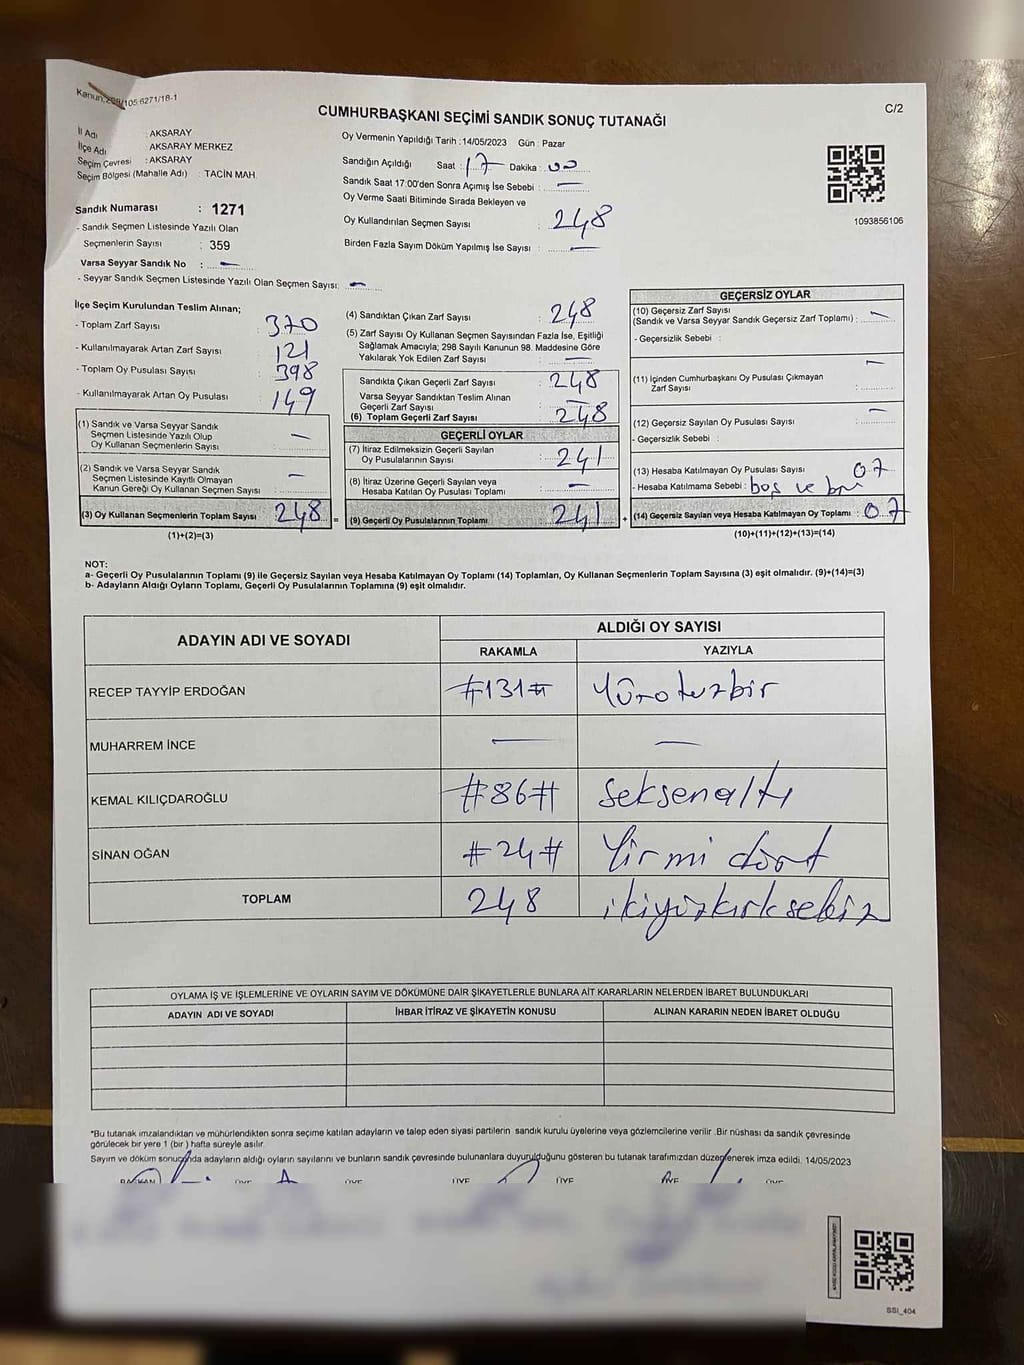 Kanun:298/105:6271/18-1
C/2
CUMHURBAŞKANI SEÇİMİ SANDIK SONUÇ TUTANAĞI
İl Adı : AKSARAY
İlçe Adı AKSARAY MERKEZ
Seçim Çevresi : AKSARAY
Seçim Bölgesi (Mahalle Adı) : TACİN MAH.
Sandık Numarası : 1271
- Sandık Seçmen Listesinde Yazılı Olan
Seçmenlerin Sayısı : 359
Varsa Seyyar Sandık No : —
- Seyyar Sandık Seçmen Listesinde Yazılı Olan Seçmen Sayısı: —
Oy Vermenin Yapıldığı Tarih :14/05/2023 Gün : Pazar
Sandığın Açıldığı Saat : 17 Dakika : 00
Sandık Saat 17:00'den Sonra Açımış İse Sebebi : —
Oy Verme Saati Bitiminde Sırada Bekleyen ve
Oy Kullandırılan Seçmen Sayısı : 248
Birden Fazla Sayım Döküm Yapılmış İse Sayısı : —
1093856106
İlçe Seçim Kurulundan Teslim Alınan;
- Toplam Zarf Sayısı : 370
- Kullanılmayarak Artan Zarf Sayısı : 121
- Toplam Oy Pusulası Sayısı : 398
- Kullanılmayarak Artan Oy Pusulası : 149
(1) Sandık ve Varsa Seyyar Sandık
Seçmen Listesinde Yazılı Olup
Oy Kullanan Seçmenlerin Sayısı : —
(2) Sandık ve Varsa Seyyar Sandık
Seçmen Listesinde Kayıtlı Olmayan
Kanun Gereği Oy Kullanan Seçmen Sayısı : —
(3) Oy Kullanan Seçmenlerin Toplam Sayısı : 248 =
(1)+(2)=(3)
(4) Sandıktan Çıkan Zarf Sayısı : 248
(5) Zarf Sayısı Oy Kullanan Seçmen Sayısından Fazla İse, Eşitliği
Sağlamak Amacıyla; 298 Sayılı Kanunun 98. Maddesine Göre
Yakılarak Yok Edilen Zarf Sayısı : —
Sandıkta Çıkan Geçerli Zarf Sayısı : 248
Varsa Seyyar Sandıktan Teslim Alınan
Geçerli Zarf Sayısı : —
(6) Toplam Geçerli Zarf Sayısı : 248
GEÇERLİ OYLAR
(7) İtiraz Edilmeksizin Geçerli Sayılan
Oy Pusulalarının Sayısı : 241
(8) İtiraz Üzerine Geçerli Sayılan veya
Hesaba Katılan Oy Pusulası Toplamı : —
(9) Geçerli Oy Pusulalarının Toplamı : 241 +
GEÇERSİZ OYLAR
(10) Geçersiz Zarf Sayısı
(Sandık ve Varsa Seyyar Sandık Geçersiz Zarf Toplamı) : —
- Geçersizlik Sebebi :
(11) İçinden Cumhurbaşkanı Oy Pusulası Çıkmayan
Zarf Sayısı : —
(12) Geçersiz Sayılan Oy Pusulası Sayısı : —
- Geçersizlik Sebebi :
(13) Hesaba Katılmayan Oy Pusulası Sayısı : 07
- Hesaba Katılmama Sebebi : boş ve
(14) Geçersiz Sayılan veya Hesaba Katılmayan Oy Toplamı : 07
(10)+(11)+(12)+(13)=(14)
NOT:
a- Geçerli Oy Pusulalarının Toplamı (9) ile Geçersiz Sayılan veya Hesaba Katılmayan Oy Toplamı (14) Toplamları, Oy Kullanan Seçmenlerin Toplam Sayısına (3) eşit olmalıdır. (9)+(14)=(3)
b- Adayların Aldığı Oyların Toplamı, Geçerli Oy Pusulalarının Toplamına (9) eşit olmalıdır.
ADAYIN ADI VE SOYADI ALDIĞI OY SAYISI
RAKAMLA YAZIYLA
RECEP TAYYİP ERDOĞAN #131# Yüzotuzbir
MUHARREM İNCE — —
KEMAL KILIÇDAROĞLU #86# seksenaltı
SİNAN OĞAN #24# Yirmi dört
TOPLAM 248 ikiyüzkırksekiz
OYLAMA İŞ VE İŞLEMLERİNE VE OYLARIN SAYIM VE DÖKÜMÜNE DAİR ŞİKAYETLERLE BUNLARA AİT KARARLARIN NELERDEN İBARET BULUNDUKLARI
ADAYIN ADI VE SOYADI İHBAR İTİRAZ VE ŞİKAYETİN KONUSU ALINAN KARARIN NEDEN İBARET OLDUĞU
*Bu tutanak imzalandıktan ve mühürlendikten sonra seçime katılan adayların ve talep eden siyasi partilerin sandık kurulu üyelerine veya gözlemcilerine verilir .Bir nüshası da sandık çevresinde
görülecek bir yere 1 (bir ) hafta süreyle asılır.
Sayım ve döküm sonucunda adayların aldığı oyların sayılarını ve bunların sandık çevresinde bulunanlara duyurulduğunu gösteren bu tutanak tarafımızdan düzenlenerek imza edildi. 14/05/2023
BAŞKAN ÜYE ÜYE ÜYE ÜYE ÜYE ÜYE
SSI_404